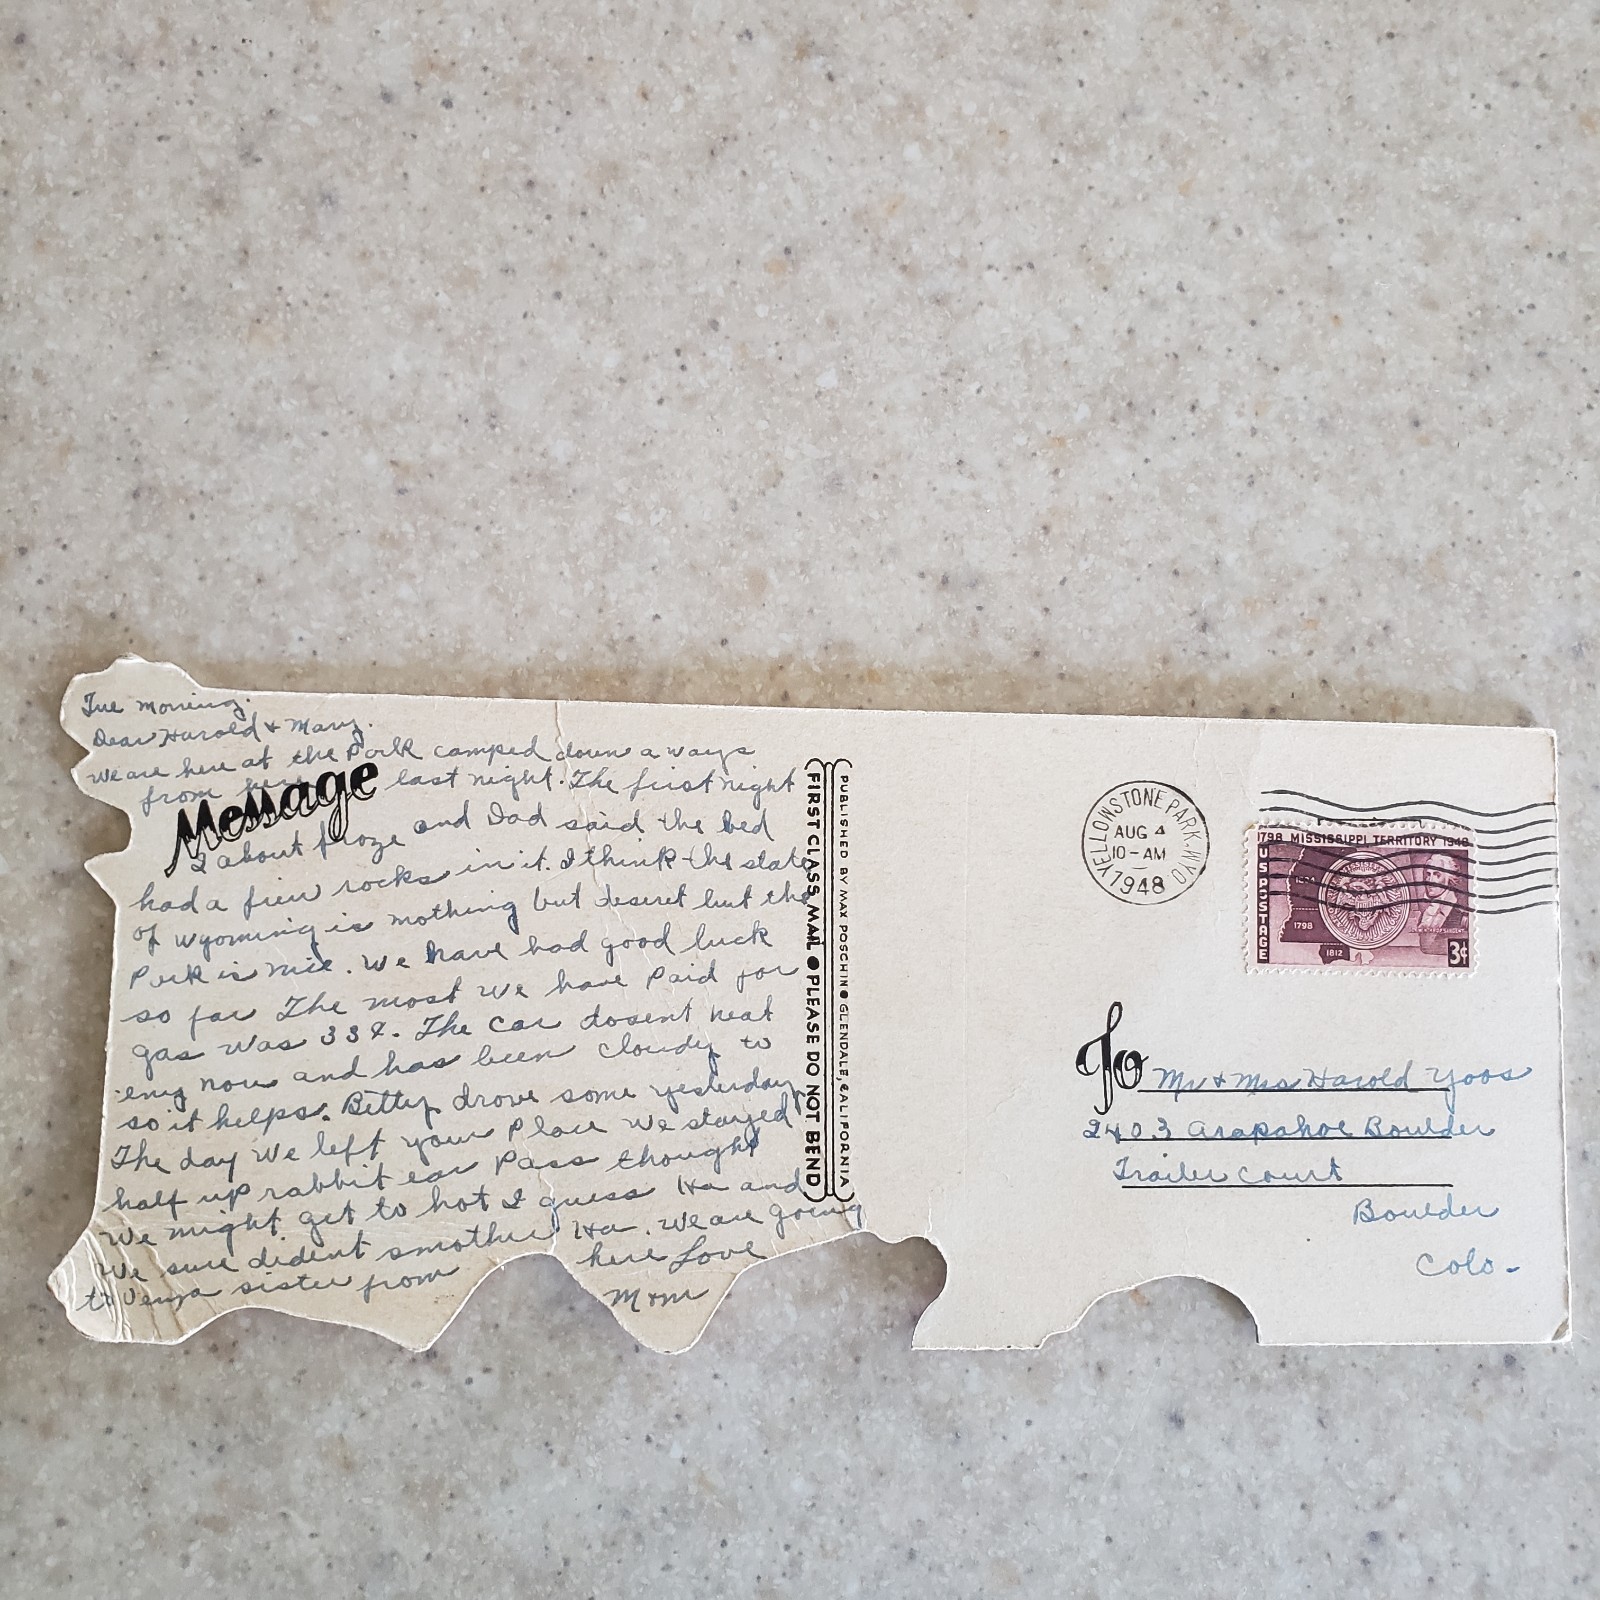 Tue morning.
Dear Harold & Mary.
we are here at the Park camped down a ways
from here last night. The first night
Message
I about froze and Dad said the bed
had a fiew rocks in it. I think the state
of wyoming is nothing but deseret but the
Park is nice. We have had good luck
so far The most we have Paid for
gas was 33¢. The car dosent heat
eny now and has been cloudy to
so it helps. Betty drove some yesterday
The day we left your Place we stayed
half up rabbit ear Pass thought
we might get to hot I guess Ha and
We sure dident smother Ha. We are going
to sister from here Love
Mom
FIRST CLASS MAIL ● PLEASE DO NOT BEND
PUBLISHED BY MAX POSCHIN ● GLENDALE, CALIFORNIA
YELLOWSTONE PARK, WYO.
AUG 4
10-AM
1948
1798 MISSISSIPPI TERRITORY 1948
U S POSTAGE
1798
1812
3¢
To Mr & Mrs Harold Yoos
2403 Arapahoe Boulder
Trailer Court
Boulder
Colo.